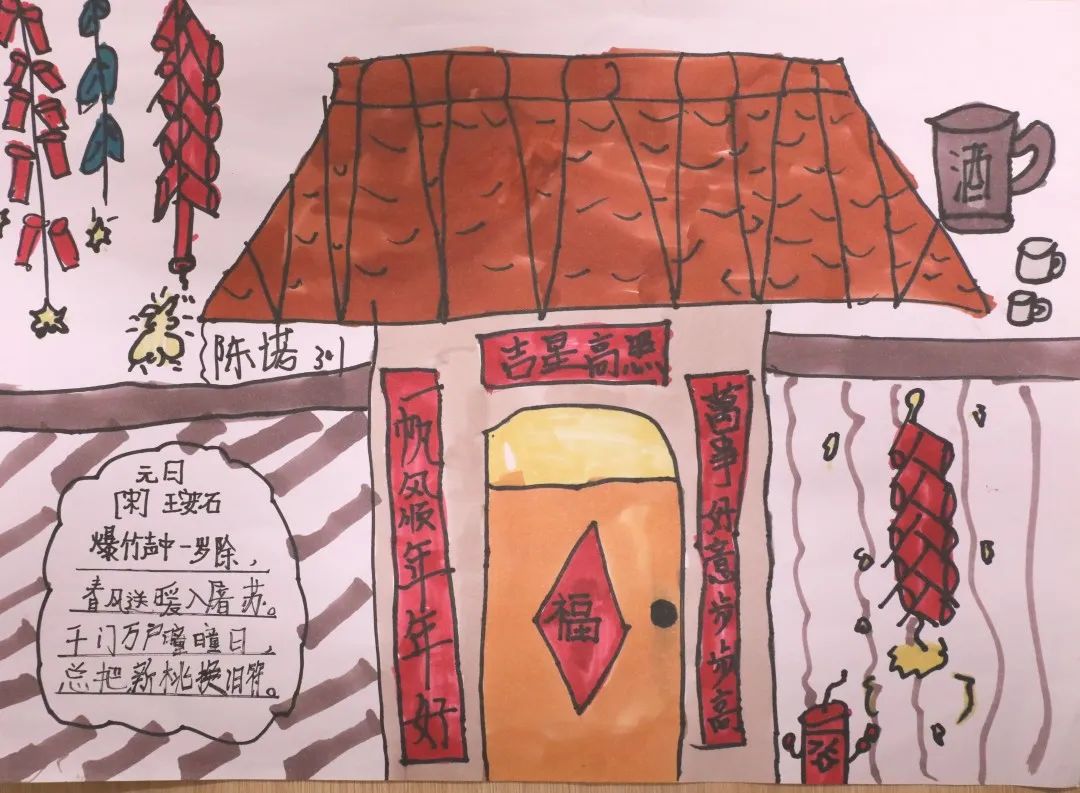 酒
陈诺 301
吉星高照
一帆风顺年年好
萬事如意步步高
福
元日
[宋] 王安石
爆竹声中一岁除，
春风送暖入屠苏。
千门万户曈曈日，
总把新桃换旧符。